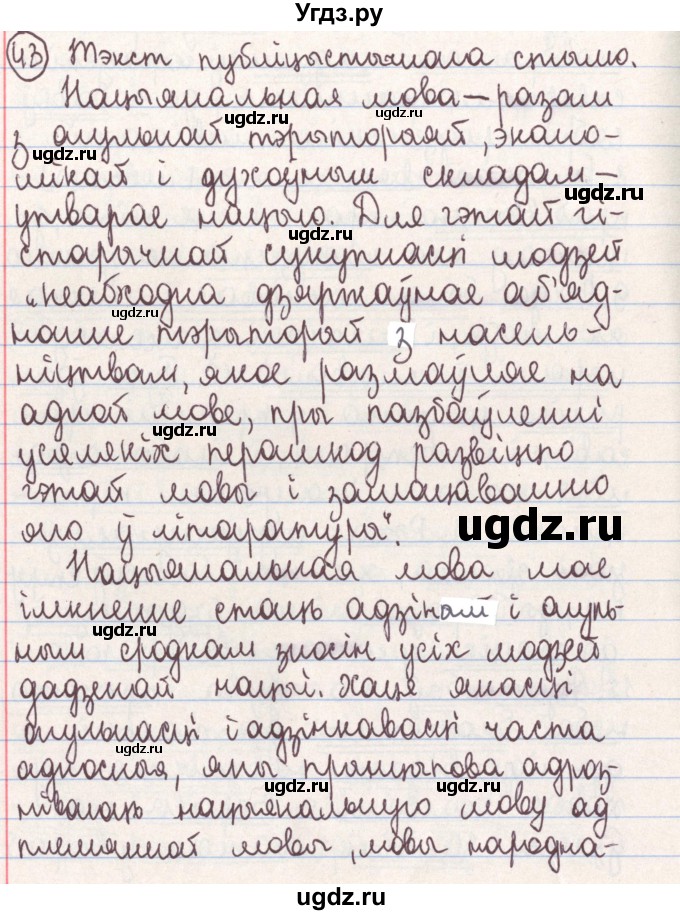 Угдз.ру
43 Тэкст публіцыстычнага стылю.
Нацыянальная мова – разам
з агульнай тэрыторыяй, экано-
мікай і духоўным складам –
утварае нацыю. Для гэтай гі-
старычнай сукупнасці людзей
„неабходна дзяржаўнае аб'яд-
нанне тэрыторый з насель-
ніцтвам, якое размаўляе на
адной мове, пры пазбаўленні
усялякіх перашкод развіццю
гэтай мовы і замацаванню
яго ў літаратуры“.
Нацыянальная мова мае
імкненне стаць адзіным і агуль-
ным сродкам зносін усіх людзей
дадзенай нацыі. Хаця якасці
агульнасці і адзінкавасці часта
адносныя, яны прынцыпова адроз-
ніваюць нацыянальную мову ад
племянной мовы, мовы народна-
ugdz.ru
ugdz.ru
ugdz.ru
ugdz.ru
ugdz.ru
ugdz.ru
ugdz.ru
ugdz.ru
ugdz.ru
ugdz.ru
ugdz.ru
ugdz.ru
ugdz.ru
ugdz.ru